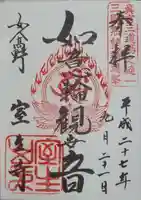 奉拝
平成二十七年
九月二十一日
如意輪観音
女人高野
室生寺